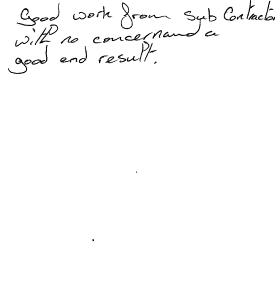 Good work from Sub Contractor
with no concern and a
good end result.